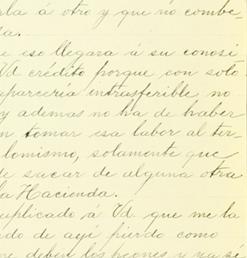 rla á otro y que no combe
da.
e eso llegara á su conosi
Vd crédito porque con solo
aparcería intrasferible no
y ademas no ha de haber
n tomar esa labor al ter
lomismo, solamente que
de sacar de alguna otra
la Hacienda.
uplicado á Vd que me la
ado de ayí pierdo como
me deben los peones y ya se